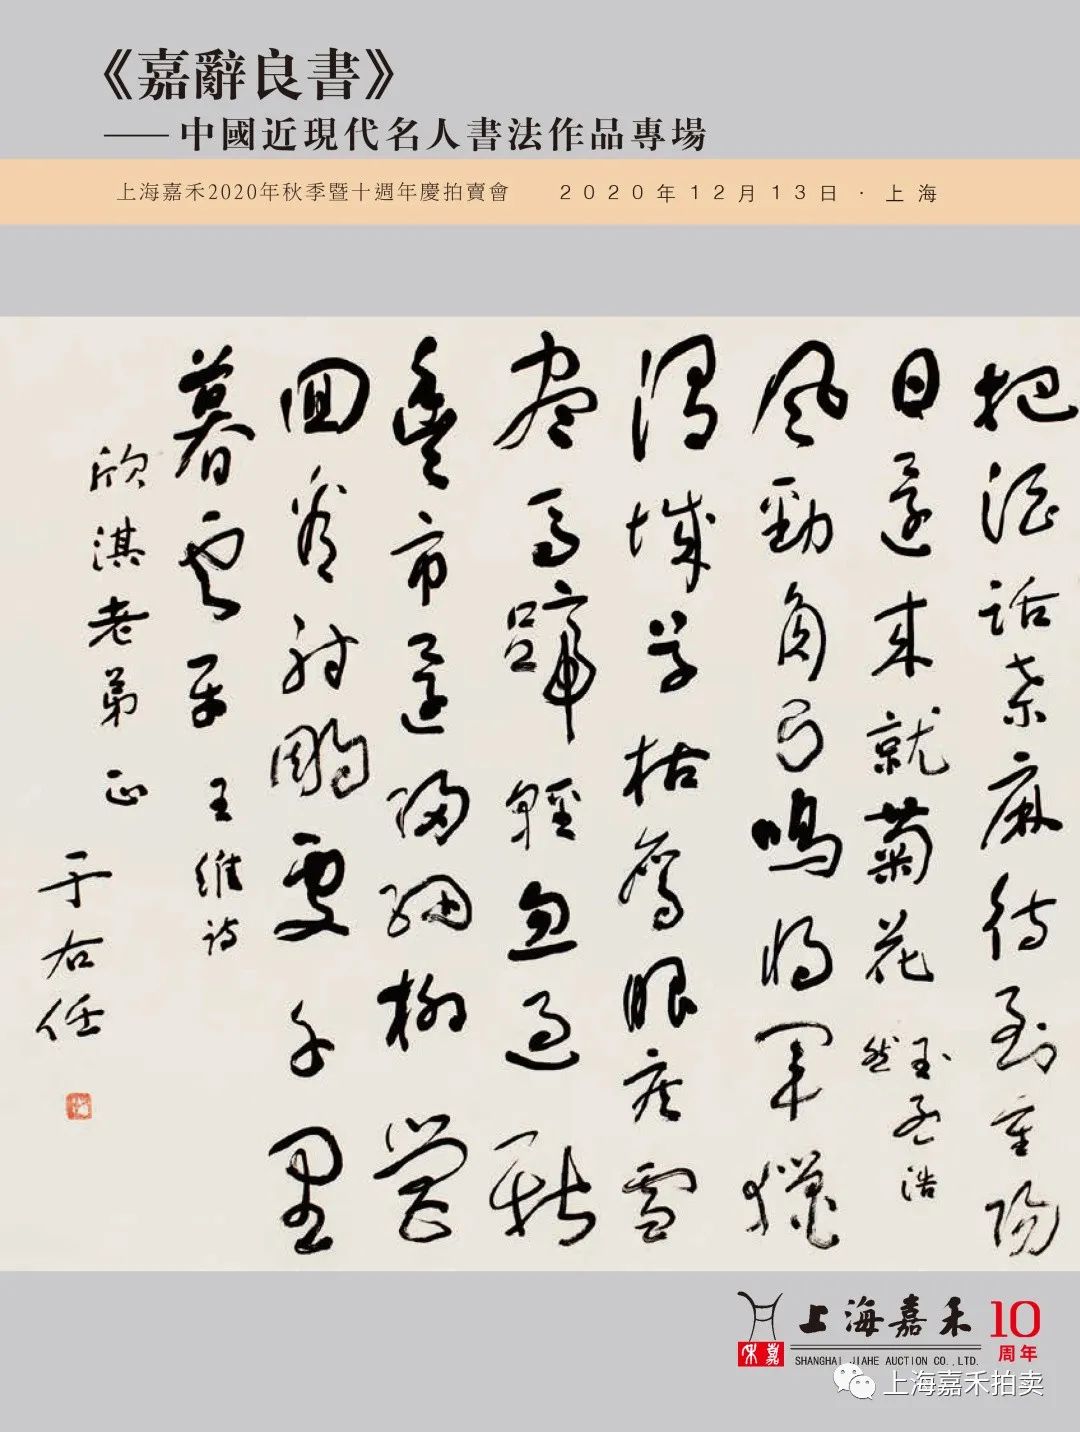 《嘉辭良書》
——中國近現代名人書法作品專場
上海嘉禾2020年秋季暨十週年慶拍賣會 2020年12月13日·上海
把酒話桑麻待到重陽
日還來就菊花
孟浩
然
風勁角弓鳴將軍獵
渭城草枯鷹眼疾雪
盡馬蹄輕忽過新
豐市還歸細柳營
回看射鵰處千里
暮雲平 王維詩
欣淇老弟正
于右任
上海嘉禾
10
周年
嘉禾
SHANGHAI JIAHE AUCTION CO.,LTD.
上海嘉禾拍卖